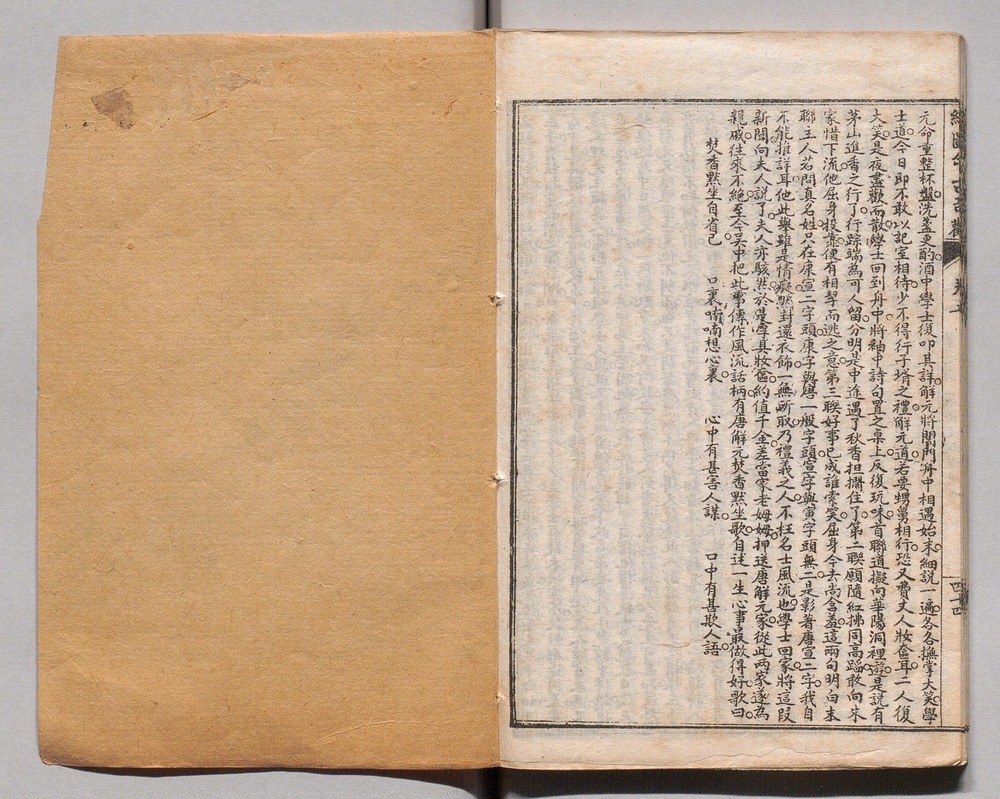 繪圖今古奇觀 卷五 四十四
元命重整杯盤洗盞更酌酒中學士復叩其詳解元將閶門舟中相遇始末細說一遍各各撫掌大笑學
士道今日即不敢以記室相待少不得行子壻之禮解元道若要甥舅相行恐又費丈人妝奩耳二人復
大笑是夜盡歡而散學士回到舟中將袖中詩句置之桌上反復玩味首聯道擬向華陽洞裡遊是說有
茅山進香之行了行踪端為可人留分明是中途遇了秋香担擱住了第二聯願隨紅拂同高蹈敢向朱
家惜下流他屈身投靠便有相挈而逃之意第三聯好事已成誰索笑屈身今去尚含羞這兩句明白末
聯主人若問真名姓只在康宣二字頭康字與唐一般字頭宣字與寅字頭無二是影著唐寅二字我自
不能推詳耳他此舉雖是情癡然封還衣飾一無所取乃禮義之人不枉名士風流也學士回家將這段
新聞向夫人說了夫人亦駭然於是厚具妝奩約值千金差當家老姆姆押送唐解元家從此兩家遂為
親戚往來不絕至今吳中把此事傳作風流話柄有唐解元焚香默坐歌自述一生心事最做得好歌曰
焚香默坐自省己 口裏喃喃想心裏 心中有甚害人謀 口中有甚欺人語